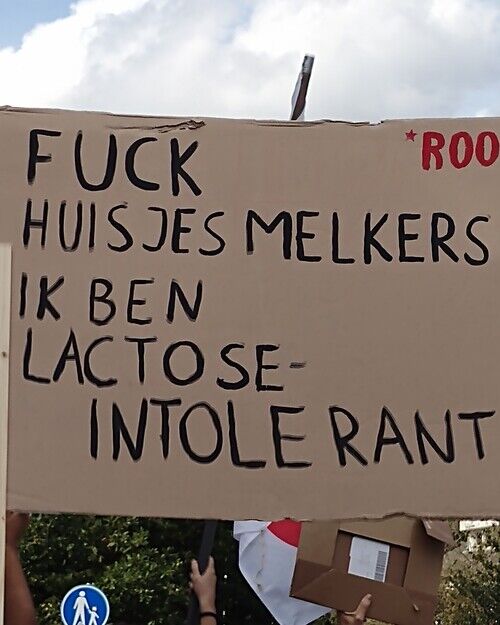 FUCK
*ROO
HUISJES MELKERS
IK BEN
LACTOSE-
INTOLERANT